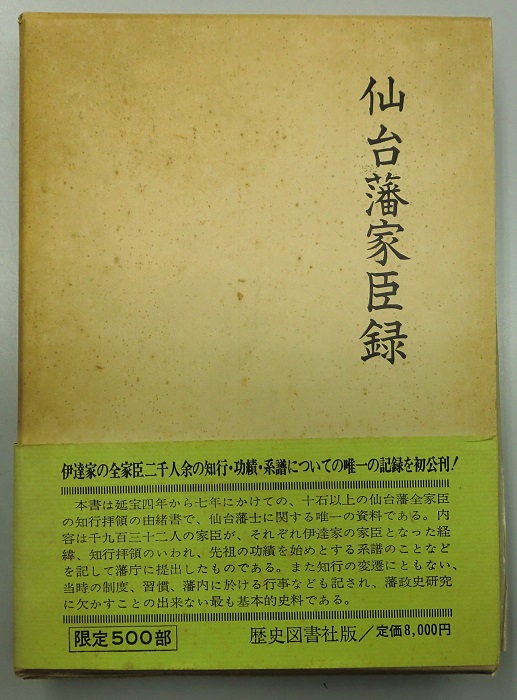 仙台藩家臣録
伊達家の全家臣二千人余の知行・功績・系譜についての唯一の記録を初公刊!
本書は延宝四年から七年にかけての、十石以上の仙台藩全家臣
の知行拝領の由緒書で、仙台藩士に関する唯一の資料である。内
容は千九百三十二人の家臣が、それぞれ伊達家の家臣となった経
緯、知行拝領のいわれ、先祖の功績を始めとする系譜のことなど
を記して藩庁に提出したものである。また知行の変遷にともない、
当時の制度、習慣、藩内に於ける行事なども記され、藩政史研究
に欠かすことの出来ない最も基本的史料である。
限定500部
歴史図書社版/定価8,000円